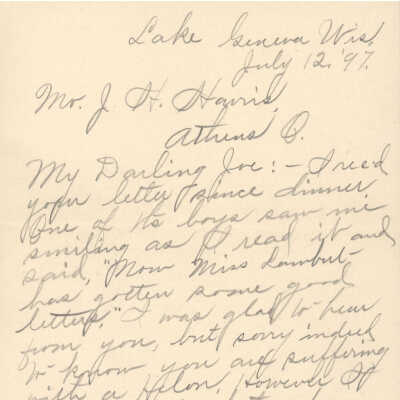 Lake Geneva Wis.
July 12, '97.
Mr. J. H. Harris,
Athens O.
My Darling Joe:- I rec'd
your letter since dinner
One of the boys saw me
smiling as I read it and
said, "Now Miss Lambert-
has gotten some good
letters." I was glad to hear
from you, but sorry indeed
to know you are suffering
with a Felon. However I